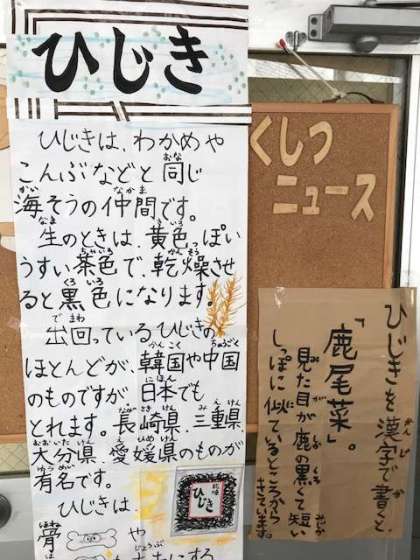 ひじき
ひじきは、わかめや
こんぶなどと同じ
海そうの仲間です。
生のときは、黄色っぽい
うすい茶色で、乾燥させ
ると黒色になります。
出回っているひじきの
ほとんどが、韓国や中国
のものですが、日本でも
とれます。長崎県、三重県、
大分県、愛媛県のものが
有名です。
ひじきは、
骨や
ひじき
くしつ
ニュース
ひじきを漢字で書くと、
「鹿尾菜」。
見た目が鹿の黒くて短い
しっぽに似ているところから
きています。